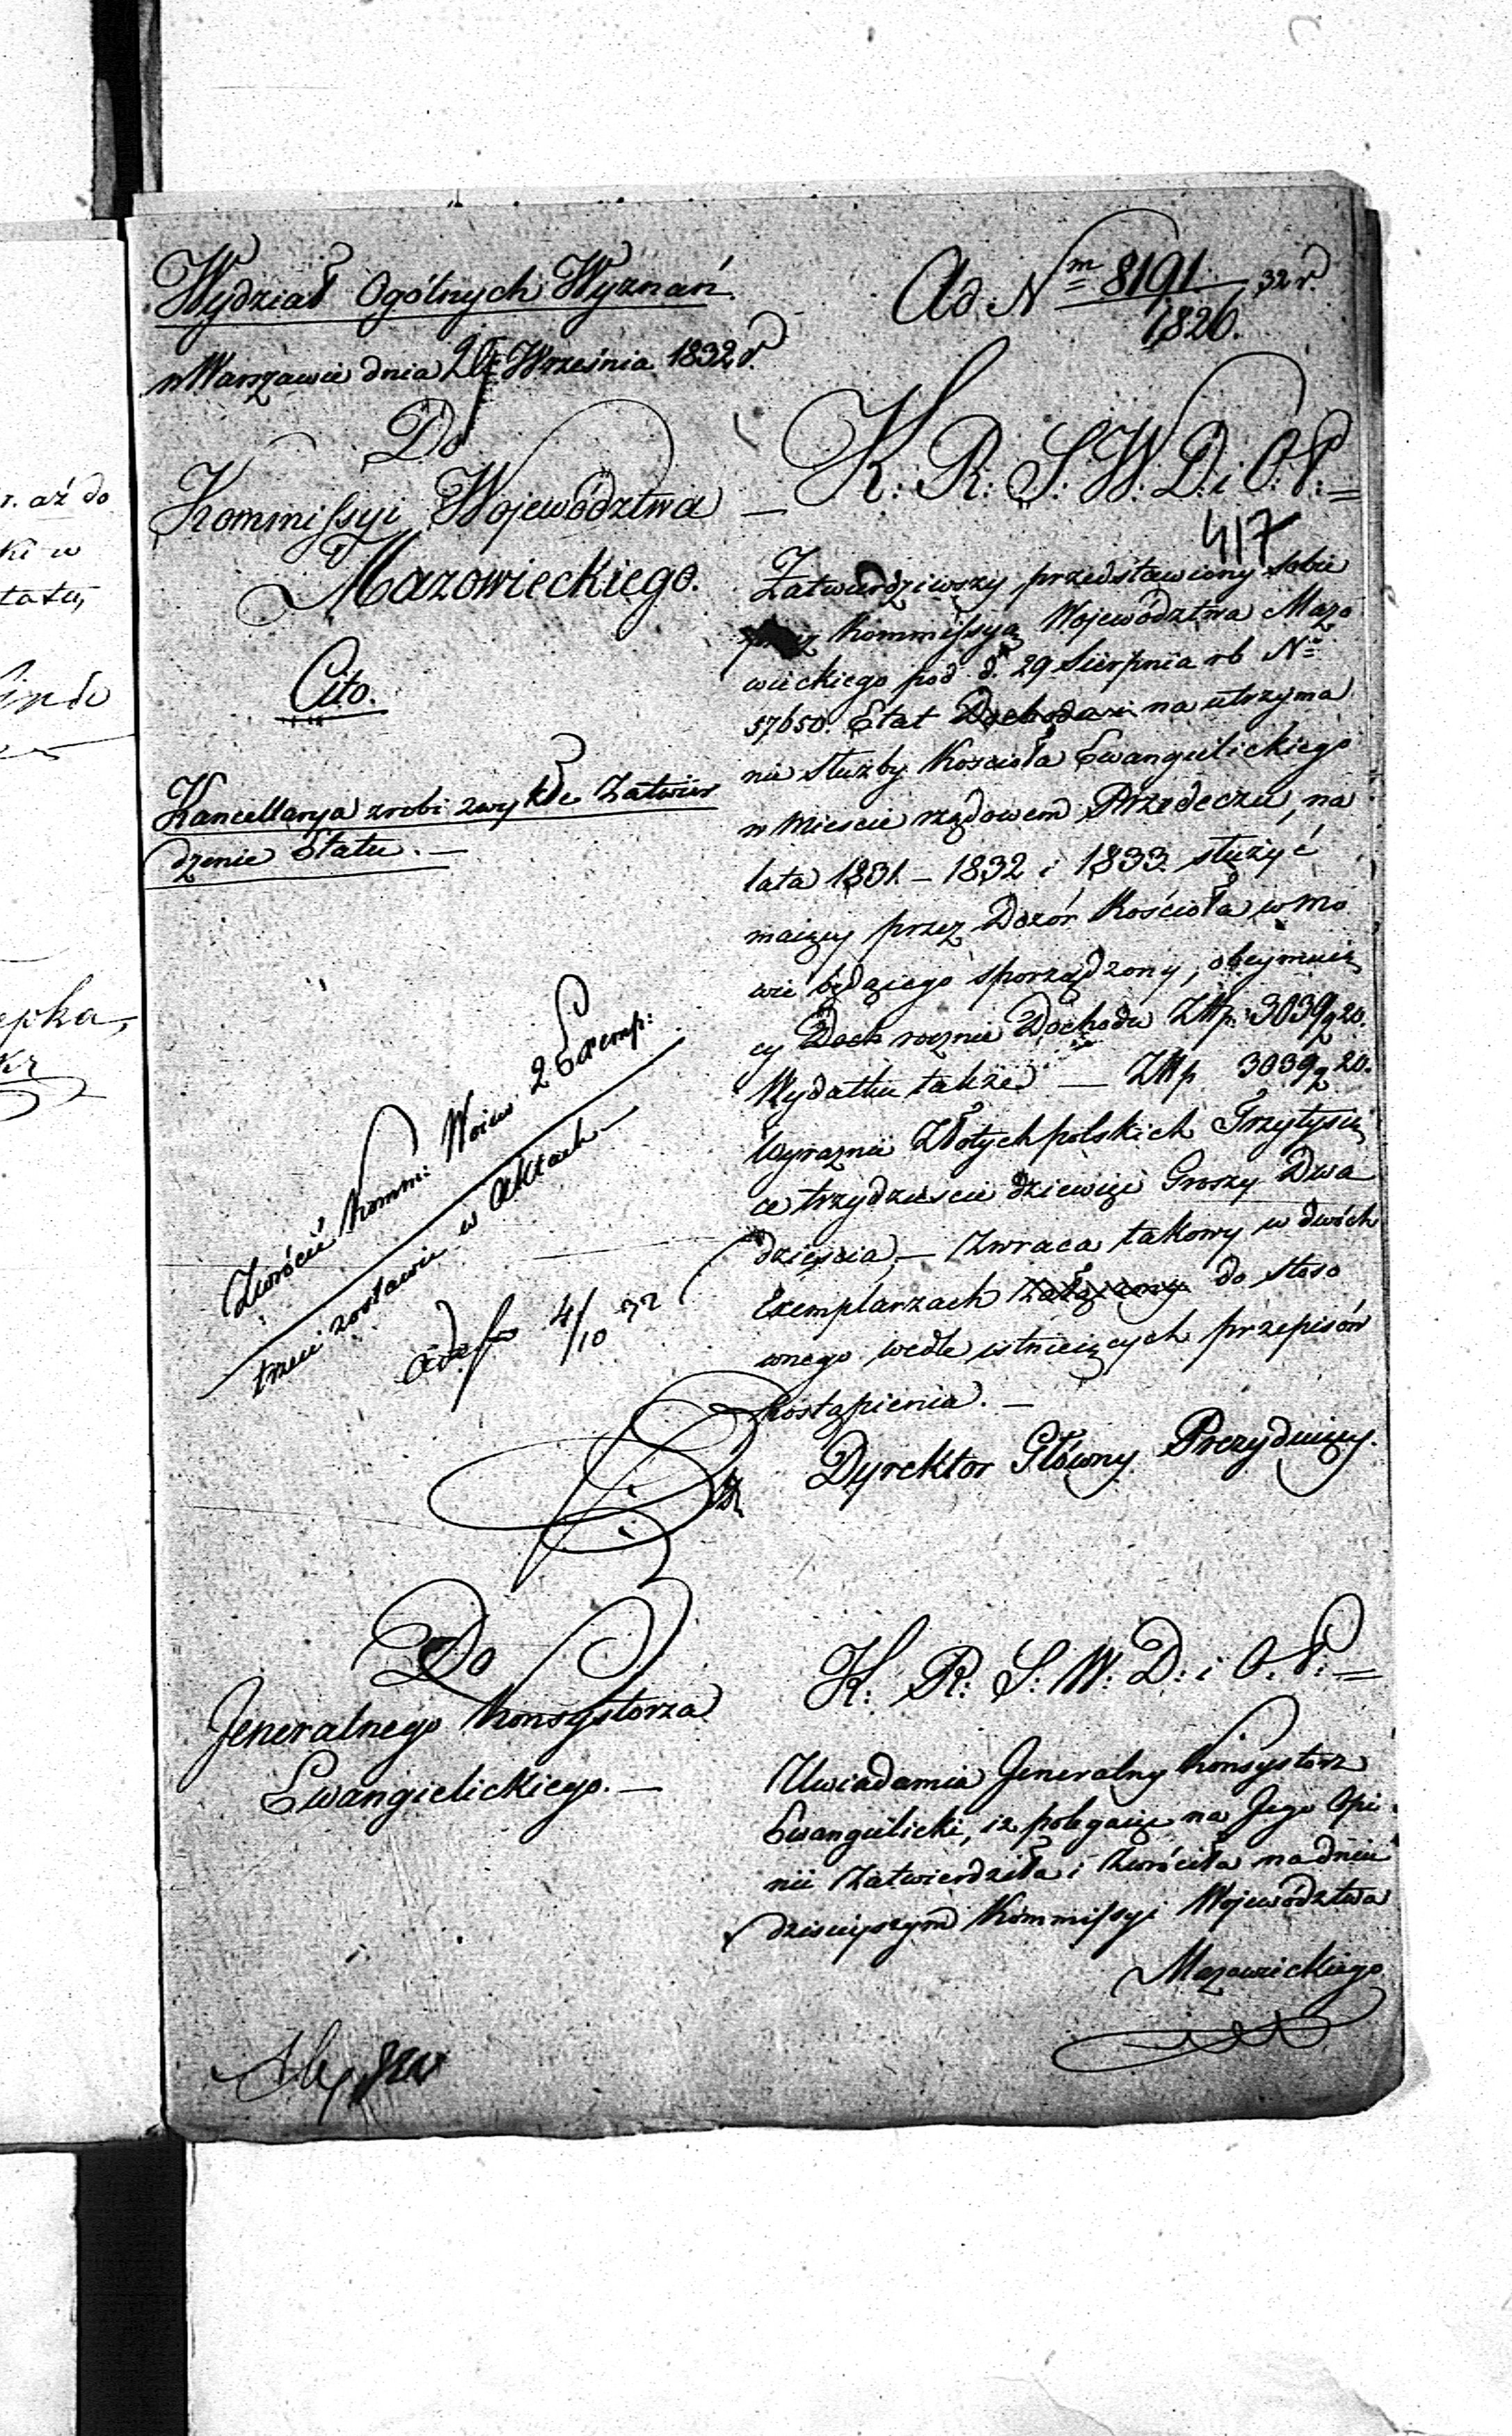 Wydział Ogólnych Wyznań.
w Warszawie dnia Września 1832 r.
Ad Nm 8191 32 r.
1826.
Do
Kommissyi Województwa
Mazowieckiego.
Cito.
Kancellarya zrobi zwykłe Zatwier
dzenie Etatu. —
Zwrócić Komm: Woiew 2 Exemp:
trzeci zostawić w aktach —
4/10 32
K: R: S: W: D: i O: P: =
417
Zatwierdziwszy przedstawiony sobie
przez Kommissyą Województwa Mazo
wieckiego pod d. 29 Sierpnia rb No
57650. Etat Dochodow na utrzyma
nie służby Kościoła Ewangelickiego
w Mieście rządowem Przedeczu, na
lata 1831. — 1832 i 1833 służyć
maiący przez Dozór Kościoła w mo
wie będącego sporządzony, obeymuią
cy Doch rocznie Dochodu ZŁp. 3039 g 20.
Wydatku także — ZŁp 3039 g 20.
Wyraźnie Złotych polskich Trzytysią
ce trzydzieście dziewięć Groszy Dwa
dzieścia, — zwraca takowy w dwóch
Exemplarzach załączony do stoso
wnego wedle istnieiących przepisów
postąpienia. —
Dyrektor Główny Prezyduiący.
Do
Jeneralnego Konsystorza
Ewangielickiego. —
K: R: S: W: D: i O: P: =
Uwiadamia Jeneralny Konsystorz
Ewangelicki, iż polegaiąc na Jego Opi
nii Zatwierdziła i zwróciła na dniu
dzisieyszym Kommissyi Województwa
Mazowieckiego
r. aż do
ki w
tatu,
epka,